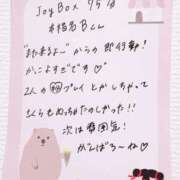 Joy Box 95分
本指名Bくん
"また来るよー"からの即行動!
かっこよすぎです♡
2人の㊙プレイとかしちゃって
さくらもめっちゃたのしかった!
次は雰囲気!
がんばろーね♡